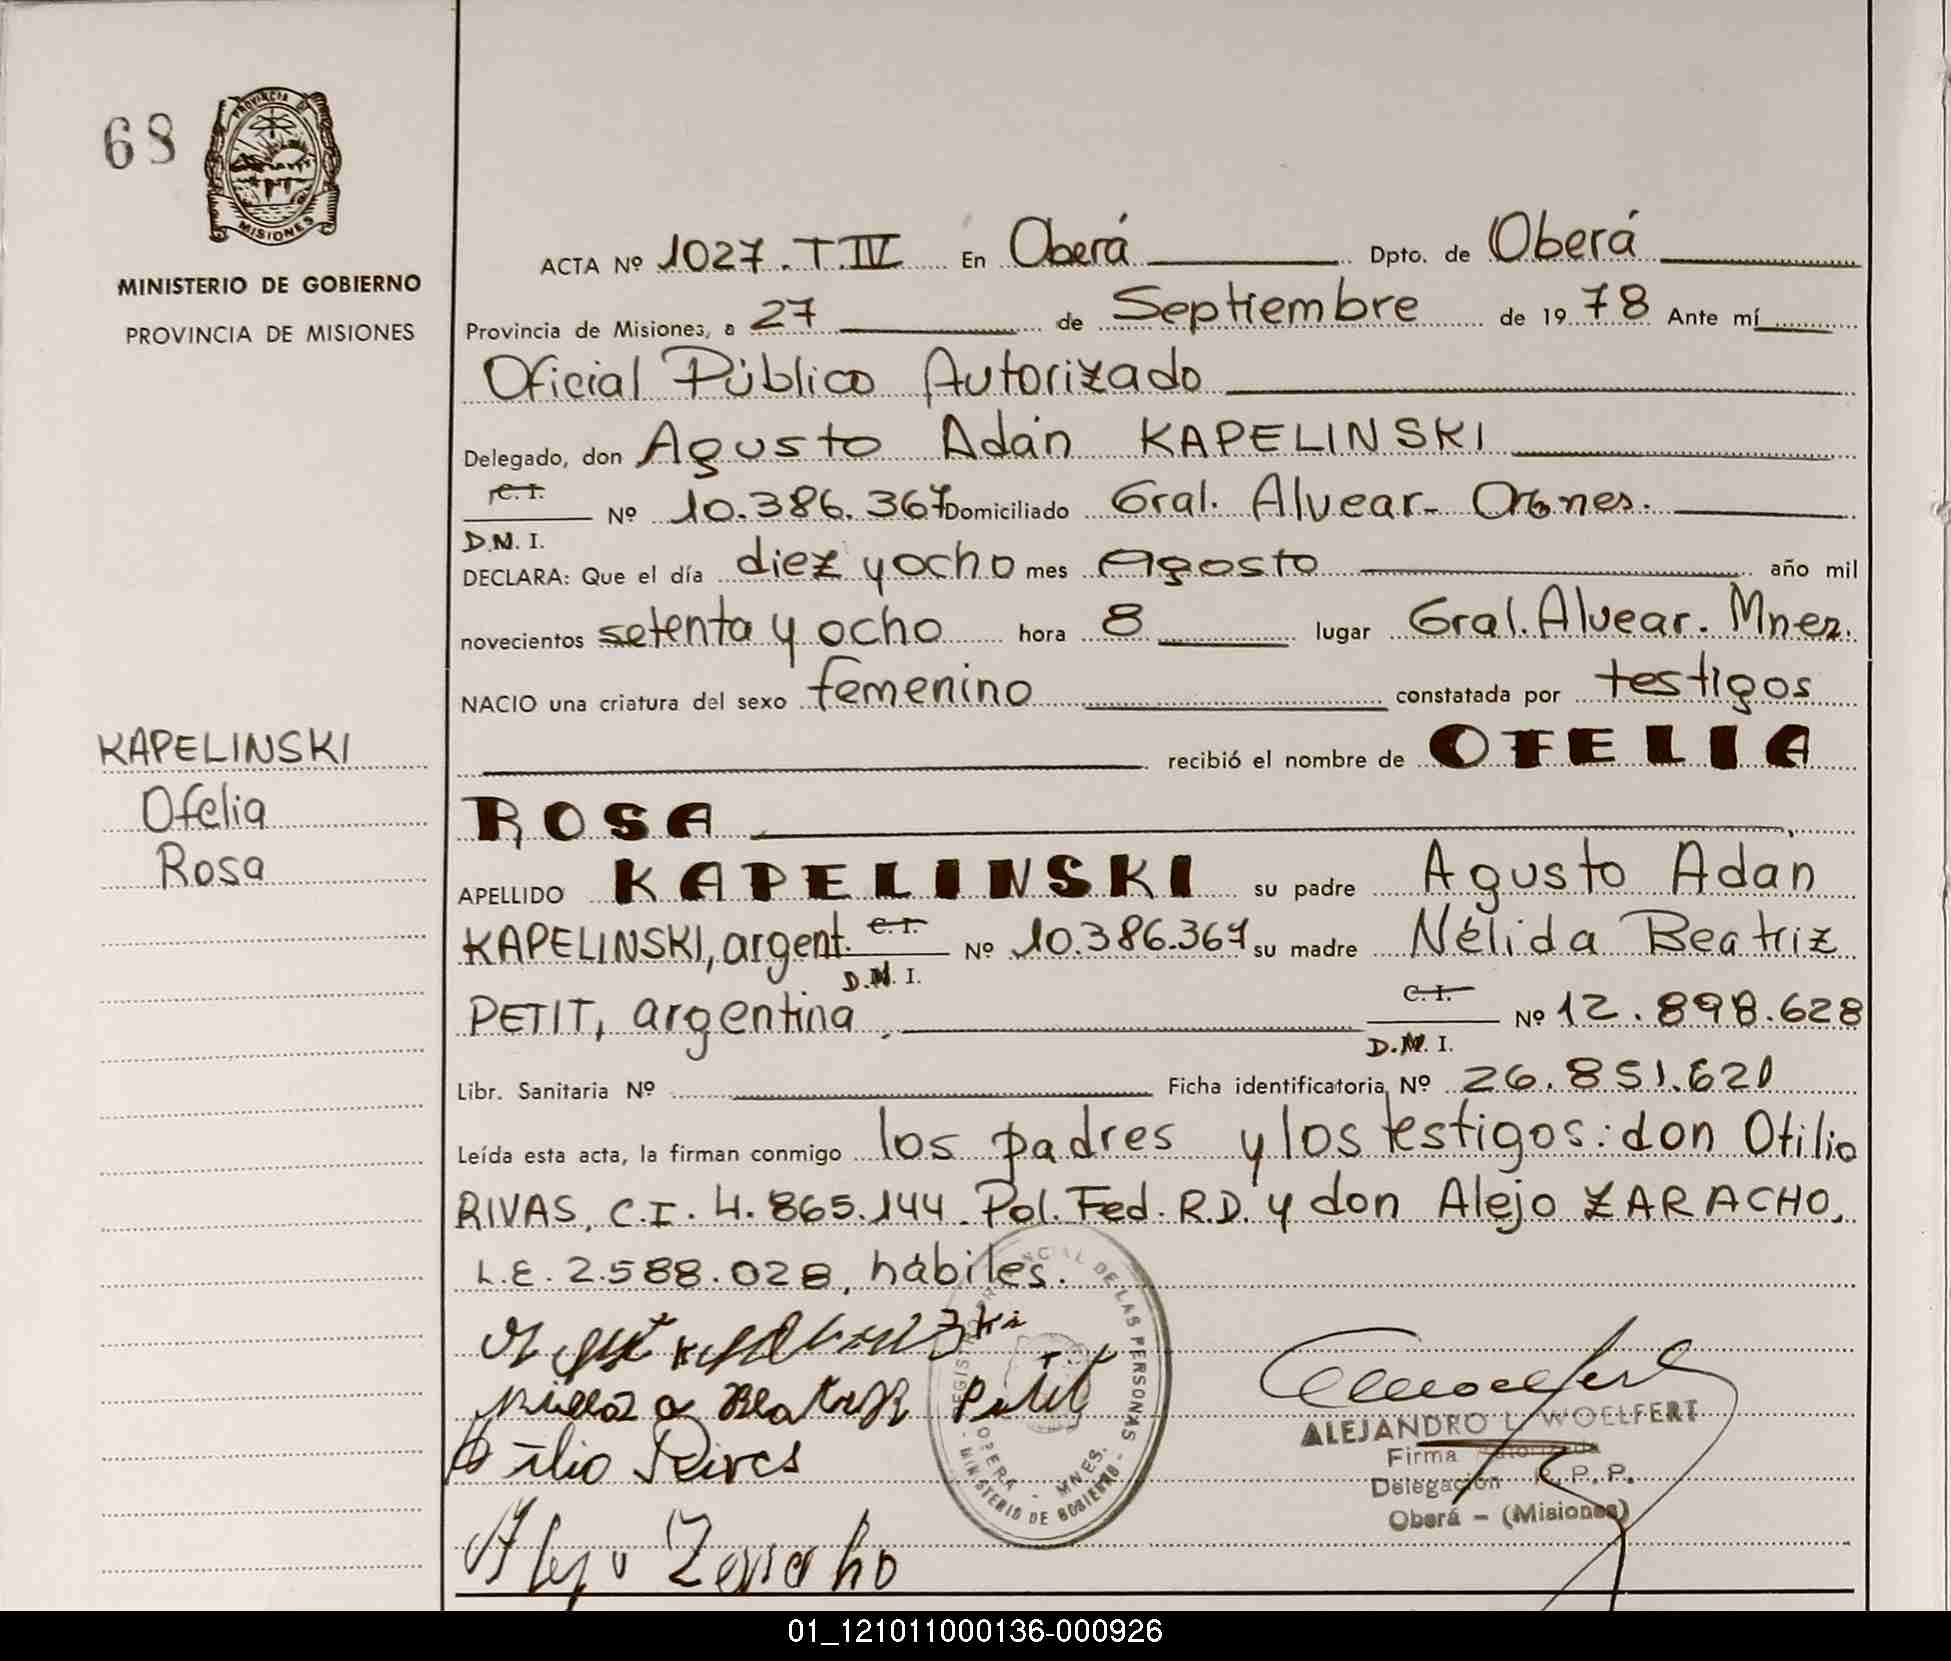 68
PROVINCIA DE
MISIONES
MINISTERIO DE GOBIERNO
PROVINCIA DE MISIONES
KAPELINSKI
Ofelia
Rosa
ACTA Nº 1027. T. IV En Oberá Dpto. de Oberá
Provincia de Misiones, a 27 de Septiembre de 1978 Ante mí
Oficial Público Autorizado
Delegado, don Agusto Adán KAPELINSKI
C. I.
Nº 10.386.367 Domiciliado Gral. Alvear-
D.N. I.
DECLARA: Que el día diez y ocho mes Agosto año mil
novecientos setenta y ocho hora 8 lugar Gral. Alvear. Mnes.
NACIO una criatura del sexo femenino constatada por testigos
recibió el nombre de OFELIA
ROSA
APELLIDO KAPELINSKI su padre Agusto Adán
KAPELINSKI, argent. C. I. Nº 10.386.367 su madre Nélida Beatriz
D.N. I.
PETIT, argentina, C. I. Nº 12.898.628
D.N. I.
Libr. Sanitaria Nº Ficha identificatoria Nº 26.851.620
Leída esta acta, la firman conmigo los padres y los testigos: don Otilio
RIVAS, C.I. 4.865.144. Pol. Fed. R.D. y don Alejo ZARACHO,
L.E. 2.588.028, hábiles.
Petit
Alejo
REGISTRO PROVINCIAL DE LAS PERSONAS
OBERA - MNES.
- MINISTERIO DE GOBIERNO -
ALEJANDRO L. WOELFERT
Firma Autorizada
Delegación R. P. P.
Oberá - (Misiones)
01_121011000136-000926